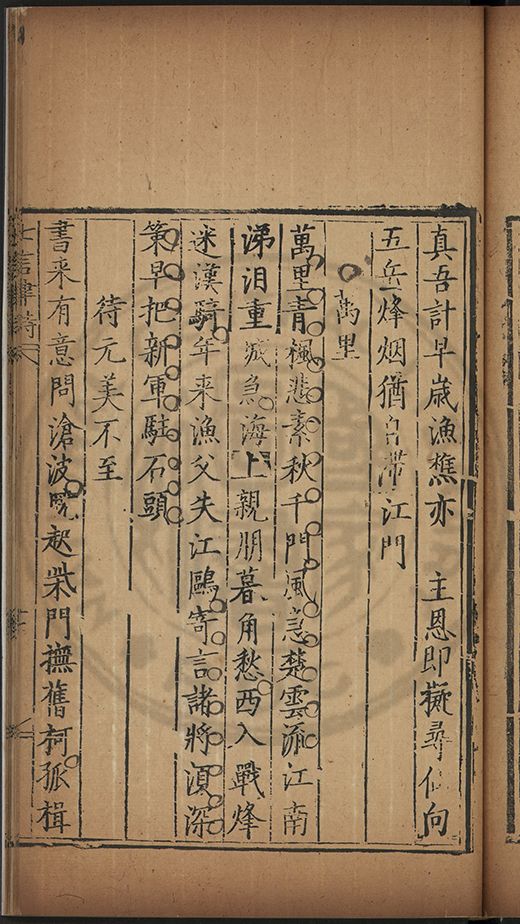 真吾計早歲漁樵亦　主恩即擬尋仙向
五岳烽烟猶自滯江門
萬里
萬里青楓悲素秋千門風急楚雲流江南
涕泪重城急海上親朋暮角愁西入戰烽
迷漢騎年来漁父失江鷗寄言諸將湏深
策早把新軍駐石頭
待元美不至
書来有意問滄波晚起柴門撫舊柯孤楫
七言律詩